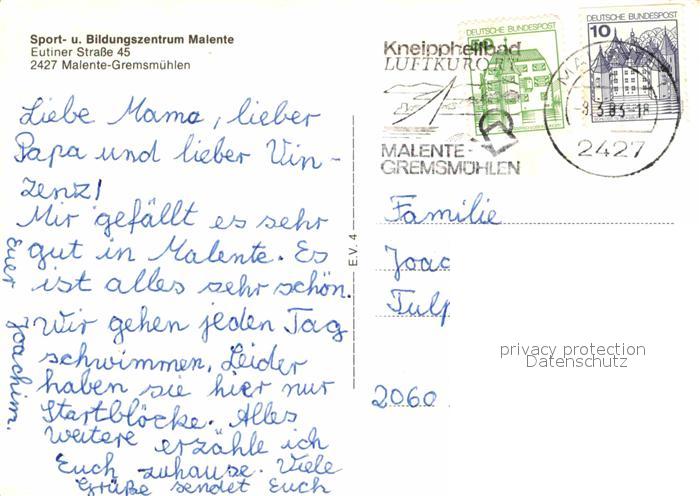 Sport- u. Bildungszentrum Malente
Eutiner Straße 45
2427 Malente-Gremsmühlen
Liebe Mama, lieber
Papa und lieber Vin-
zenz!
Mir gefällt es sehr
gut in Malente. Es
ist alles sehr schön.
Wir gehen jeden Tag
schwimmen. Leider
haben sie hier nur
Startblöcke. Alles
weitere erzähle ich
Euch zuhause. Viele
Grüße sendet Euch
Euer Joachim.
E.V. 4
Kneippheilbad
LUFTKURORT
MALENTE-
GREMSMÜHLEN
DEUTSCHE BUNDESPOST
DEUTSCHE BUNDESPOST
10
-8.3.83-18
2427
Familie
Joac
Tulp
2060
privacy protection
Datenschutz